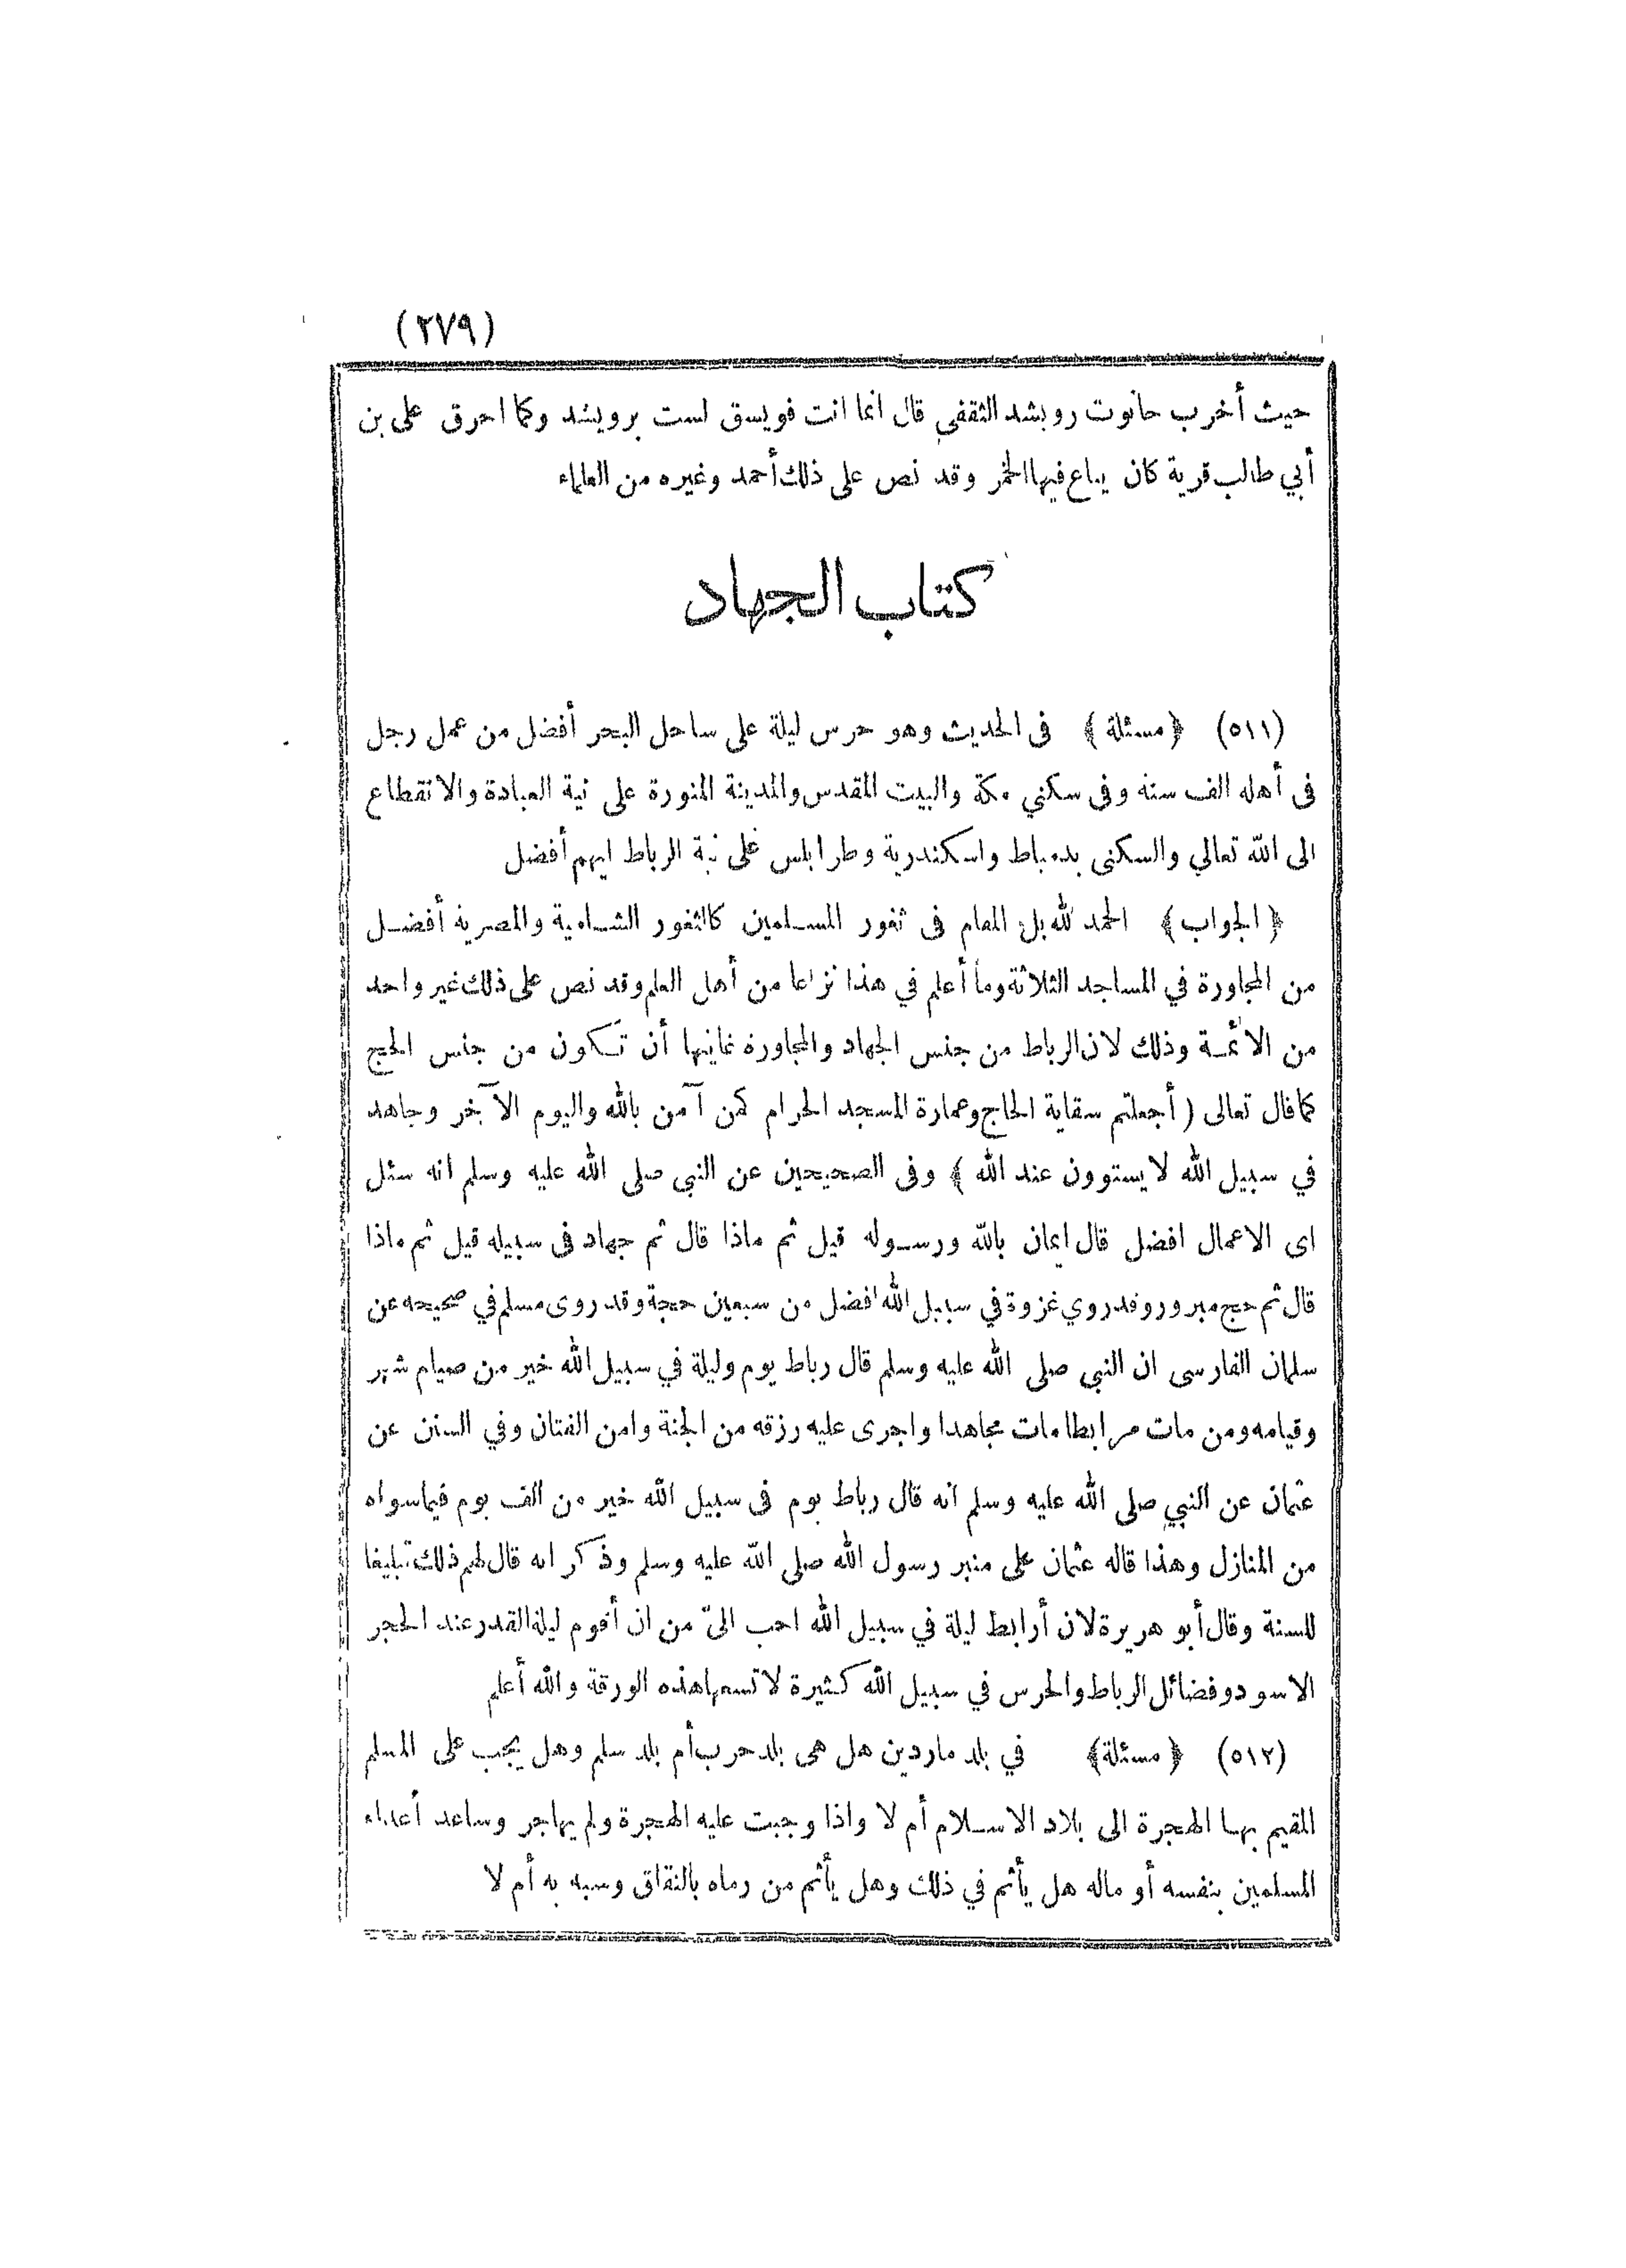 (٢٧٩)
حيث أخرب حانوت رويشد الثقفي قال انما انت فويسق لست برويشد وكما احرق على بن
أبي طالب قرية كان يباع فيها الخمر وقد نص على ذلك أحمد وغيره من العلماء
كتاب الجهاد
(٥١١) ﴿ مسئلة ﴾ فى الحديث وهو حرس ليلة على ساحل البحر أفضل من عمل رجل
فى أهله الف سنة وفى سكني مكة والبيت المقدس والمدينة المنورة على نية العبادة والانقطاع
الى الله تعالي والسكنى بدمياط واسكندرية وطرابلس على نية الرباط ايهم أفضل
﴿ الجواب ﴾ الحمد لله بل المقام فى ثغور المسلمين كالثغور الشامية والمصرية أفضل
من المجاورة في المساجد الثلاثة وما أعلم في هذا نزاعا من أهل العلم وقد نص على ذلك غير واحد
من الائمة وذلك لان الرباط من جنس الجهاد والمجاورة غايتها أن تكون من جنس الحج
كما قال تعالى ( أجعلتم سقاية الحاج وعمارة المسجد الحرام كمن آمن بالله واليوم الآخر وجاهد
في سبيل الله لا يستوون عند الله ﴾ وفى الصحيحين عن النبي صلى الله عليه وسلم انه سئل
اى الاعمال افضل قال ايمان بالله ورسوله قيل ثم ماذا قال ثم جهاد فى سبيله قيل ثم ماذا
قال ثم حج مبرور وقد روي غزوة في سبيل الله افضل من سبعين حجة وقد روى مسلم في صحيحه عن
سلمان الفارسى ان النبي صلى الله عليه وسلم قال رباط يوم وليلة في سبيل الله خير من صيام شهر
وقيامه ومن مات مرابطا مات مجاهدا واجرى عليه رزقه من الجنة وامن الفتان وفي السنن عن
عثمان عن النبي صلى الله عليه وسلم انه قال رباط يوم فى سبيل الله خير من الف يوم فيما سواه
من المنازل وهذا قاله عثمان على منبر رسول الله صلى الله عليه وسلم وذكر انه قال لهم ذلك تبليغا
للسنة وقال أبو هريرة لان أرابط ليلة في سبيل الله احب الىّ من ان أقوم ليلة القدر عند الحجر
الاسود وفضائل الرباط والحرس في سبيل الله كثيرة لا تسعها هذه الورقة والله أعلم
(٥١٢) ﴿ مسئلة﴾ في بلد ماردين هل هى بلد حرب أم بلد سلم وهل يجب على المسلم
المقيم بها الهجرة الى بلاد الاسلام أم لا واذا وجبت عليه الهجرة ولم يهاجر وساعد أعداء
المسلمين بنفسه أو ماله هل يأثم في ذلك وهل يأثم من رماه بالنفاق وسبه به أم لا